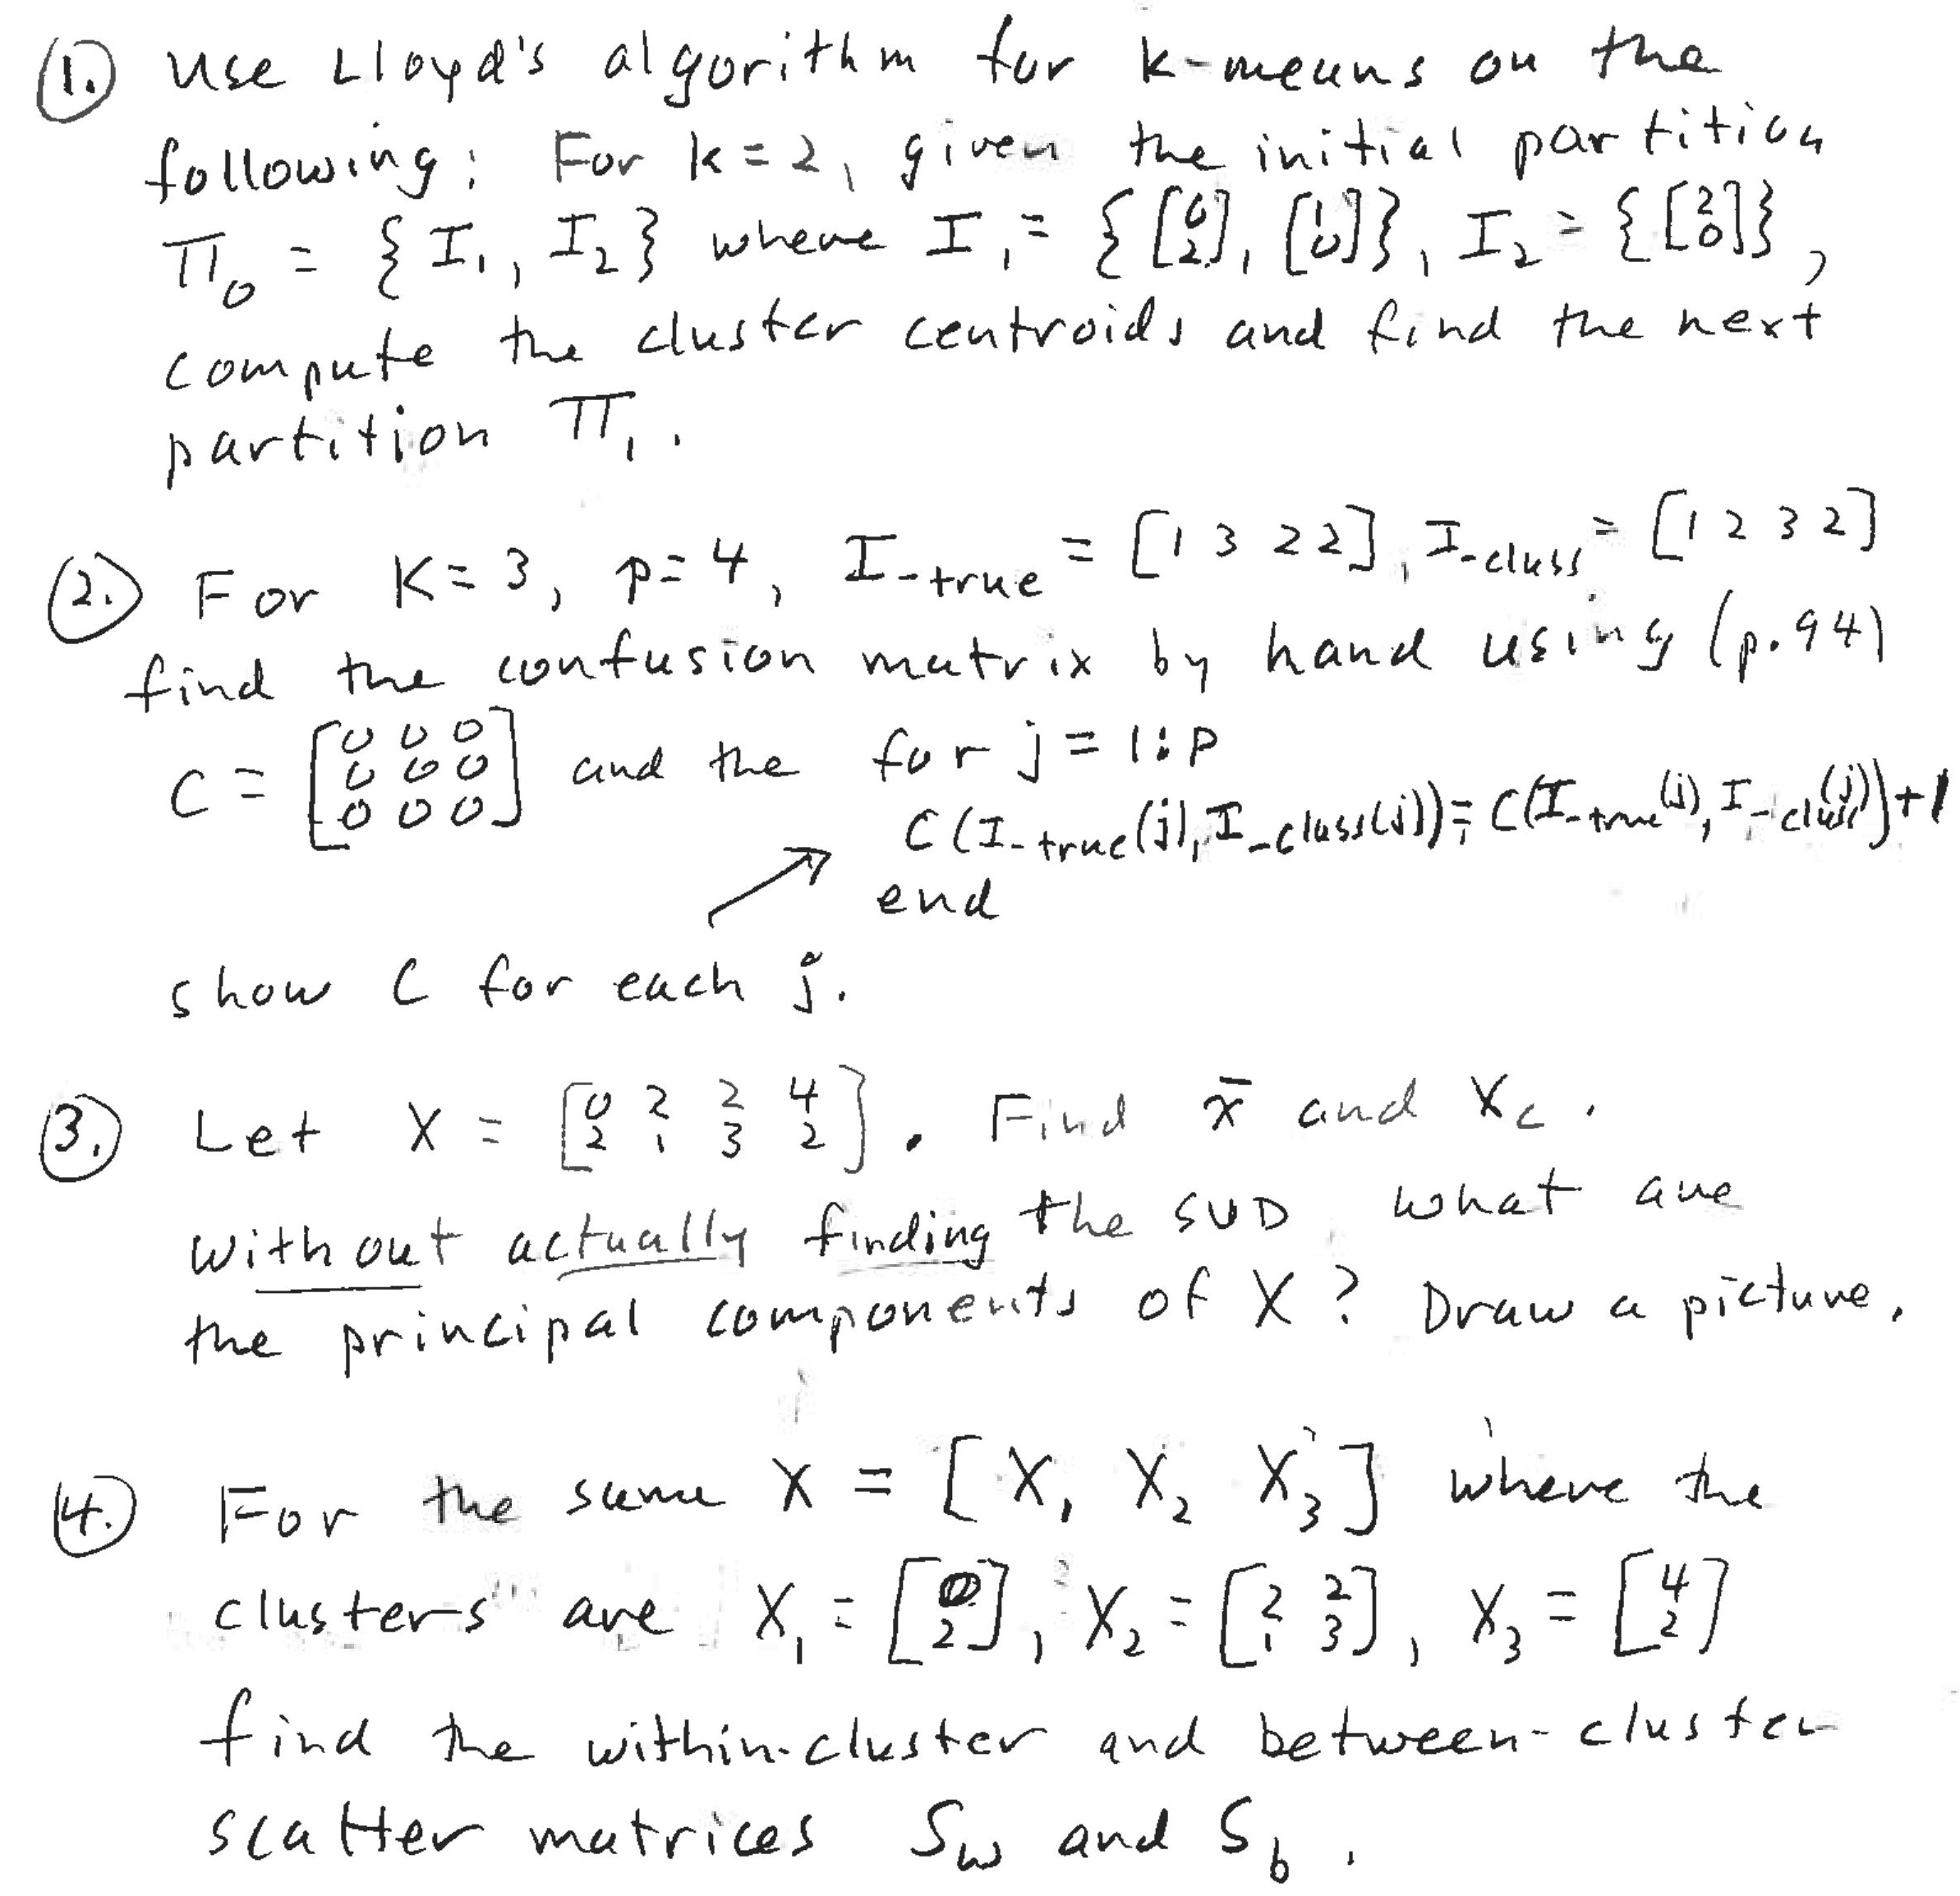 1. Use Lloyd's algorithm for k-means on the
following: For k=2, given the initial partition
Π₀ = {I₁, I₂} where I₁ = {[0; 2], [1; 0]}, I₂ = {[2; 0]},
compute the cluster centroids and find the next
partition Π₁.
2. For K=3, p=4, I-true = [1 3 2 2], I-class = [1 2 3 2]
find the confusion matrix by hand using (p.94)
C = [0 0 0; 0 0 0; 0 0 0] and the for j=1:p
C(I-true(j), I-class(j)) = C(I-true(j), I-class(j))+1
end
show C for each j.
3. Let X = [0 2 2 4; 2 1 3 2]. Find x̄ and Xc.
without actually finding the SVD what are
the principal components of X? Draw a picture.
4. For the same X = [X₁ X₂ X₃] where the
clusters are X₁ = [0; 2], X₂ = [2 2; 1 3], X₃ = [4; 2]
find the within-cluster and between-cluster
scatter matrices Sw and Sb.